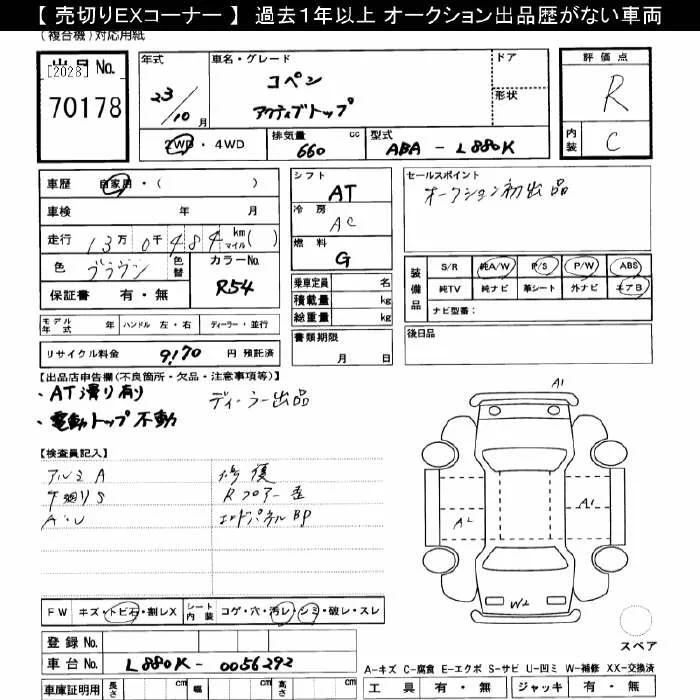 【 売切りEXコーナー 】 過去1年以上 オークション出品歴がない車両
(複合機)対応用紙
出品No.
[2028]
70178
年式
23/10月
車名・グレード
コペン
アクティブトップ
ドア
形状
評価点
R
内装
C
2WD・4WD
排気量 660 cc
型式 ABA - L880K
車歴 自家用・( )
車検 年 月
走行 13万0千484 km マイル( )
色 ブラウン
色替
カラーNo. R54
保証書 有・無
シフト
AT
冷房
AC
燃料
G
セールスポイント
オークション初出品
乗車定員 名
積載量 kg
総重量 kg
装備品
S/R 純A/W P/S P/W ABS
純TV 純ナビ 革シート 外ナビ エアB
ナビ型番:
モデル年式 年 ハンドル 左・右 ディーラー・並行
書類期限
月 日
後日品
リサイクル料金 9,170 円 預託済
【出品店申告欄(不良箇所・欠品・注意事項等)】
・AT滑り有 ディーラー出品
・電動トップ不動
【検査員記入】
アルミA 修復
下廻りS Rフロアー歪
A・U エンドパネルBP
A1
A2
A1
W2
スペア
FW キズ・トビ石・割レX シート内装 コゲ・穴・汚レ・シミ・破レ・スレ
登録No.
車台No. L880K - 0056292
車庫証明用 長さ cm 幅 cm 高さ cm
A-キズ C-腐食 E-エクボ S-サビ U-凹ミ W-補修 XX-交換済
工具 有・無 ジャッキ 有・無